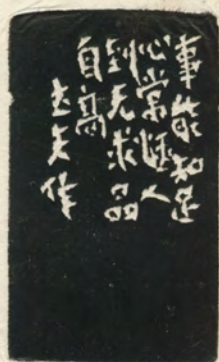 事能知足
心常惬人
到无求品
自高
作